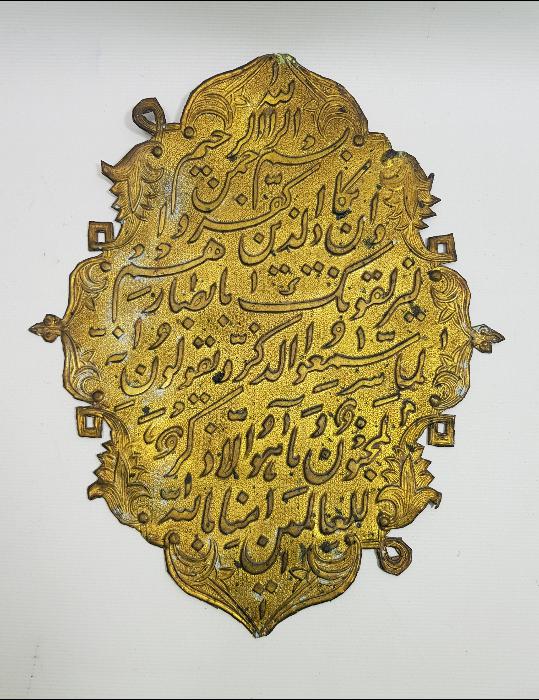 بسم الله الرحمن الرحیم
وان یکاد الذین کفروا
لیزلقونک بابصارهم
لما سمعوا الذکر و یقولون انه
لمجنون و ما هو الا ذکر
للعالمین